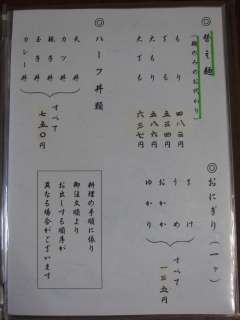 ◎替え麺
(麺のみのおかわり)
もり 四八三円
大もり 五三四円
大ざる 六三七円
◎おにぎり(一ヶ)
さけ
うめ
おかか
ゆかり
すべて 一三五円
◎ハーフ丼類
天丼
カツ丼
玉子丼
カレー丼
すべて 七五〇円
料理の手順に依り
御注文順より
お出しする順序が
異なる場合がございます